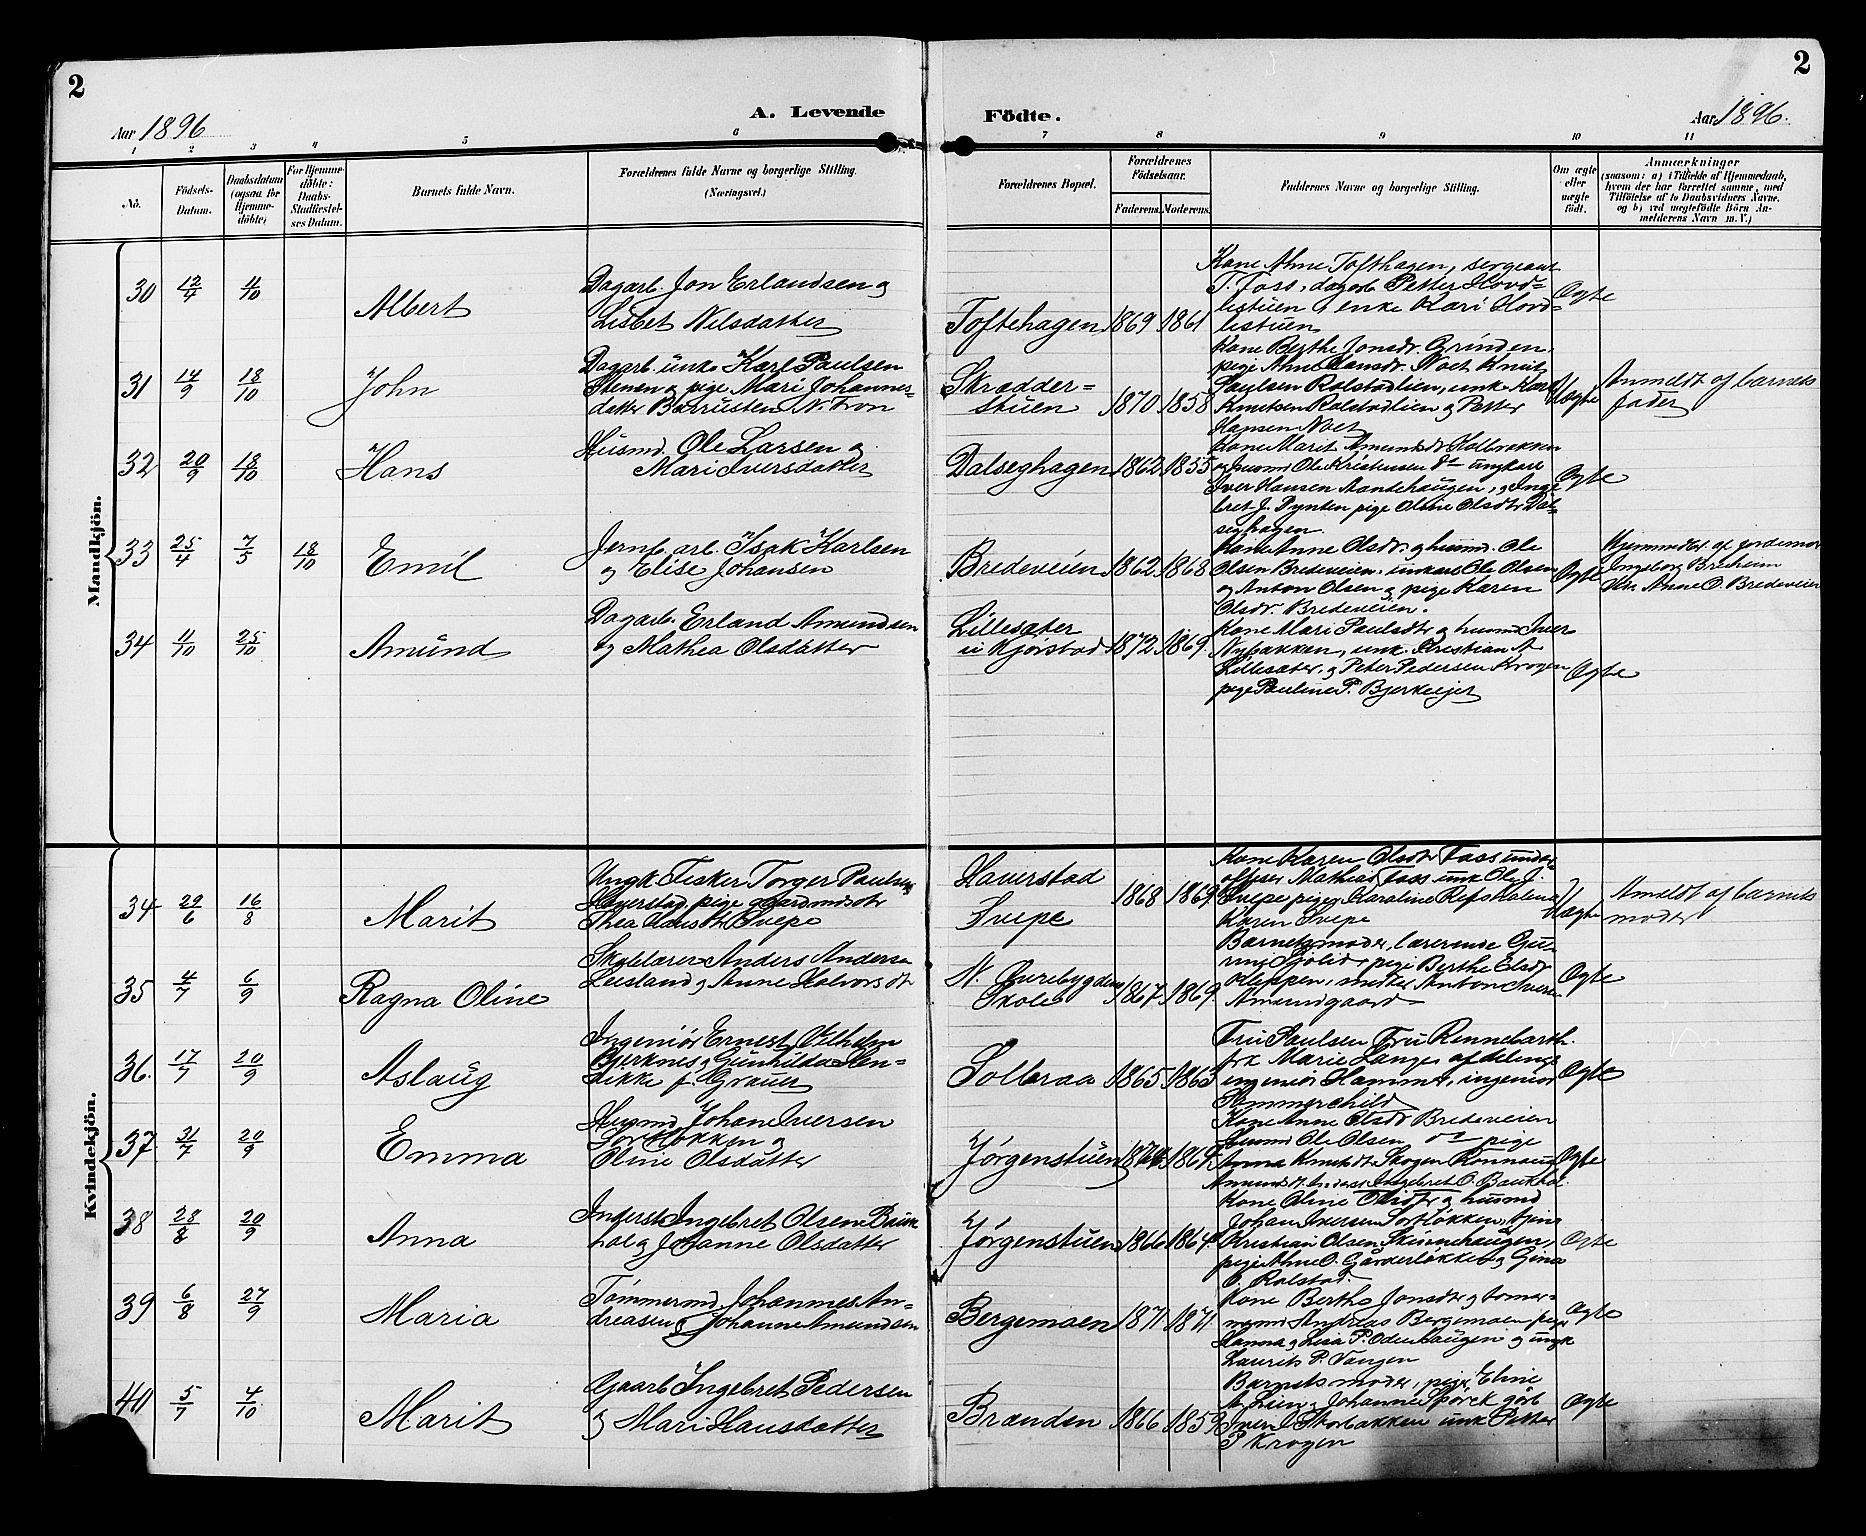 2
2
A. Levende
Fødte.
Aar 1896
Aar 1896.
1 2 3 4 5 6 7 8 9 10 11
No.
Födsels-
Datum.
Daabsdatum
(ogsaa for
Hjemme-
døbte)
For Hjemme-
døbte:
Daabs-
Stadfæstel-
ses Datum.
Barnets fulde Navn.
Forældrenes fulde Navne og borgerlige Stilling.
(Næringsvei.)
Forældrenes Bopæl.
Forældrenes
Födselsaar.
Faderens.
Moderens.
Faddernes Navne og borgerlige Stilling.
Om ægte
eller
uægte
født.
Anmærkninger
(saasom: a) i Tilfælde af Hjemmedaab,
hvem der har forrettet samme, med
Tilføielse af to Daabsvidners Navne,
og b) ved uægtefødte Børn An-
melderens Navn m. V.)
Mandkjön.
30 12/4 4/10
Albert
Dagarb. Jon Erlandsen og
Lisbet Nilsdatter
Toftehagen 1869 1861
Kone Anne Tofthagen, sergeant
T. Foss, dagarb Petter Hovd=
listuen og enke Kari Hovd-
listuen
Ægte
31 14/9 18/10
John
Dagarb. unk. Karl Paulsen
Stenen og pige Mari Johannes-
datter Barrusten N. Fron
Skrædder=
stuen 1870 1858
Kone Berthe Jonsdr. Grinden,
pige Anne Hansdr. Noet Knut
Paulsen Rolstadlien, unk. Karl
Knutsen Rolstadlien og Petter
Hansen Noet
Uægte
Anmeldt af barnets
fader
32 20/9 18/10
Hans
Husmd. Ole Larsen og
Mari Iversdatter
Dalseghagen 1862 1855
Kone Marit Amundsdr Holbrækken
og husmd Ole Kristensen do ungkarl
Iver Hansen Aandehaugen, og Inge
bret J. Dynten pige Oline Olsdtr Dal-
seghagen
Ægte
33 25/4 7/5 18/10
Emil
Jernb. arb. Isak Karlsen
og Elise Johansen
Bredeveien 1862 1868
Kone Anne Olsdr. og husmd. Ole
Olsen Bredeveien. unkarl Ole Olsen
og Anton Olsen og pige Karen
Olsdr. Bredeveien.
Ægte
Hjemmedbt. af jordemor
Ingeborg Breheim
Anne O. Bredeveien
34 11/10 25/10
Amund
Dagarb. Erland Amundsen
og Mathea Olsdatter
Lillesæter
u Kjørstad 1872 1869.
Kone Mari Paulsdtr og husmd Iver
Nybakken, unk. Kristian A
Lillesæter og Peter Pedersen Krogen
pige Pauline P. Bjerkeiget
Ægte
Kvindekjön.
34 29/6 16/8
Marit
Ungk. Fisker Torger Paulsen
Haverstad, pige og Gaardmdsdtr
Thea Hansdtr Svepe
Haverstad
Svepe
1868 1869
Kone Karen Olsdtr Foss under-
offiser Mathias Foss unk Ole J.
Svepe pige Karoline
Karen Svepe
Uægte
Anmeldt af barnets
moder
35 4/7 6/9
Ragna Oline
Skolelærer Anders Andersen
Leisland og Anne Halvorsdt
N. Furebygden
Skole 1867 1869
Barnets moder, lærerinde Gu-
rine Sjolid, pige Berthe Elsdr
Kleppen, Anton Iversen
Amundgaard
Ægte
36. 17/7 20/9
Aslaug
Ingeniör Ernest Vilhelm
Bjerknes og Gunhilda Hen-
rikke f. Grauer
Solbraa 1865 1863
Fru Paulsen Fru Rennebarth.
frk Marie Lange, afdelings
ingeniör Hammer, ingeniör
Sommerschild
Ægte
37 31/7 20/9
Emma
Husmd Johan Iversen
Sorfløkken og
Oline Olsdatter
Jørgenstuen 1864
Kone Anne Olsdr Bredeveien
husmd Ole Olsen do pige
Anna Knutsdtr Skogen Rønnaug
Amundsdtr Ingebret O. Baukhol.
Ægte
38 28/8 20/9
Anna
Inderst Ingebret Olsen Bauk
hol og Johanne Olsdatter
Jørgenstuen 1866 1864
Kone Oline Olsdtr og husmd
Johan Iversen Sorfløkken,
Kristian Olsen Skinnehaugen,
pige Anne O. Gårderløkken og Gina
O. Rolstad.
Ægte
39 6/8 27/9
Maria
Tømmermd Johannes An-
dreasen og Johanne Amundsen
Bergemoen 1871 1871
Kone Berthe Jonsdtr og tømer-
mand Andreas Bergemoen pige
Hanna og Lisa P. Odenhaugen og ungk
Laurits P. Vangen
Ægte
40 5/7 4/10
Marit
Gaarb. Ingebret Pedersen
og Mari Hansdatter
Branden 1866 1859
Barnets moder, pige Eline
A. Lien og Johanne Spörck gårb
Iver O. Storbakken unk Petter
P Krogen
Ægte